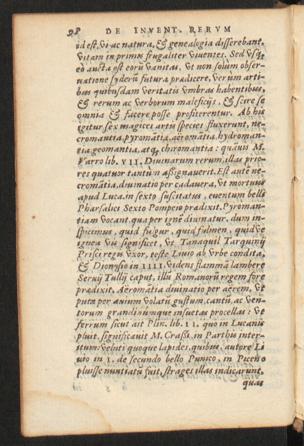 98 DE INVENT. RERVM
id est, vi ac natura, & genealogia disserebant,
vitam in primis frugaliter viuentes. Sed vsq;
eò aucta est eorū vanitas, vt non solum obser-
uatione syderū futura prædicere, verùm arti-
bus quibusdam veritatis vmbras habentibus,
& rerum ac verborum maleficijs, & scire se
omnia & facere posse profiterentur. Ab his
igitur sex magicæ artis species fluxerunt, ne-
cromantia, pyromātia, aëromātia, hydroman-
tia, geomantia, atq; chiromantia: quāuis M.
Varro lib. VII. Diuinarum rerum, illas prio-
res quatuor tantùm aßignauerit. Est autē ne-
cromātia, diuinatio per cadauera, vt mortuus
apud Lucanum sexto suscitatus, euentum belli
Pharsalici Sexto Pompeio prædixit. Pyroman-
tiam vocant, qua per ignē diuinatur, dum in-
spicimus, quid fulgur, quid fulmen, quid vis
ignea vii significet, vt Tanaquil Tarquinij
Prisci regis vxor, teste Liuio ab vrbe condita,
& Dionysio in IIII. videns flammā lambere
Seruij Tullij caput, illū Romanorū regem fore
prædixit. Aëromātia diuinatio per aërem, vt
puta per auium volatū gustum, cantū, ac ven-
torum grandinumque insuetas procellas: vt
ferrum sicut ait Plin. lib. II. quo in Lucania
pluit, significauit M. Craßi, in Parthis interi-
tum: veluti quoque lapides, quibus, autore Li
uio in I. de secundo bello Punico, in Piceno
pluisse nuntiatū fuit, strages illas indicarunt,
quas